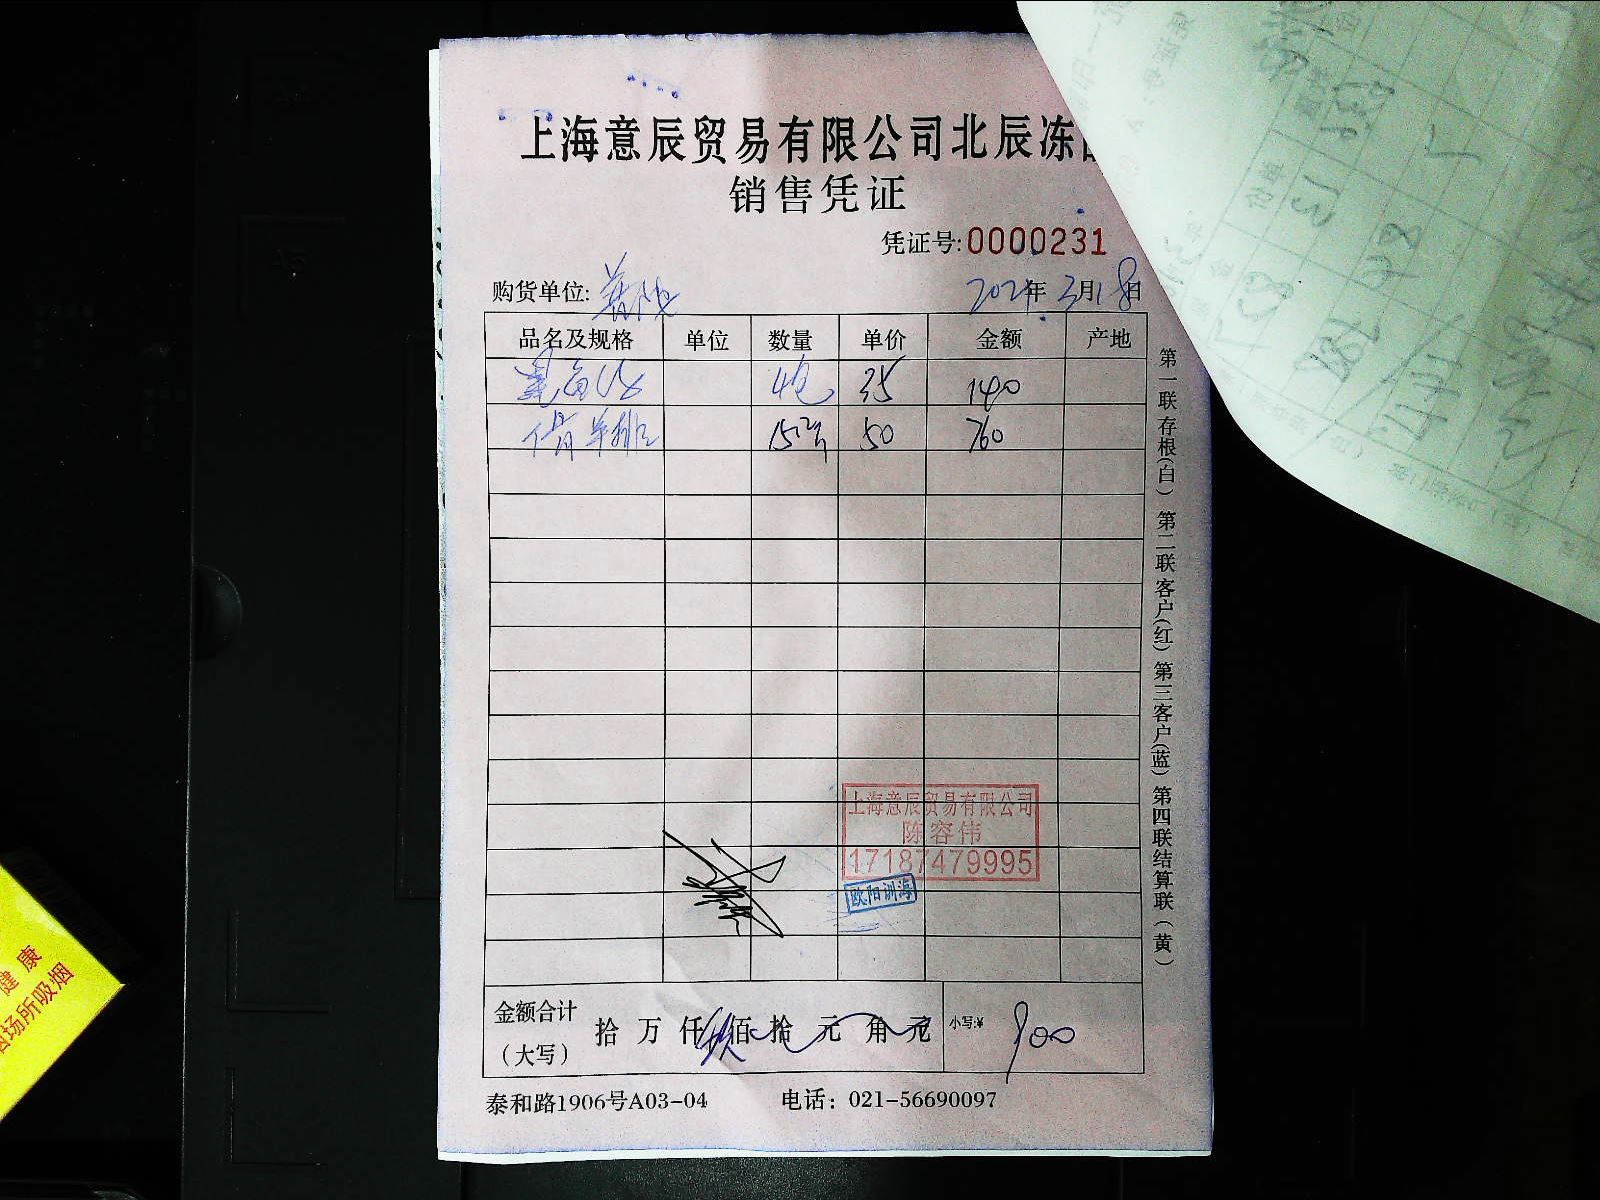 上海意辰贸易有限公司北辰冻
销售凭证
凭证号:0000231
购货单位:
2024年3月18日
品名及规格 单位 数量 单价 金额 产地
4包 35 140
羊排 15.2斤 50 760
上海意辰贸易有限公司
陈容伟
17187479995
欧阳训海
金额合计
(大写)
拾 万 仟 玖 佰 拾 元 角 元 小写:¥ 900
泰和路1906号A03-04 电话: 021-56690097
第一联存根(白) 第二联客户(红) 第三客户(蓝) 第四联结算联(黄)
健康
场所吸烟